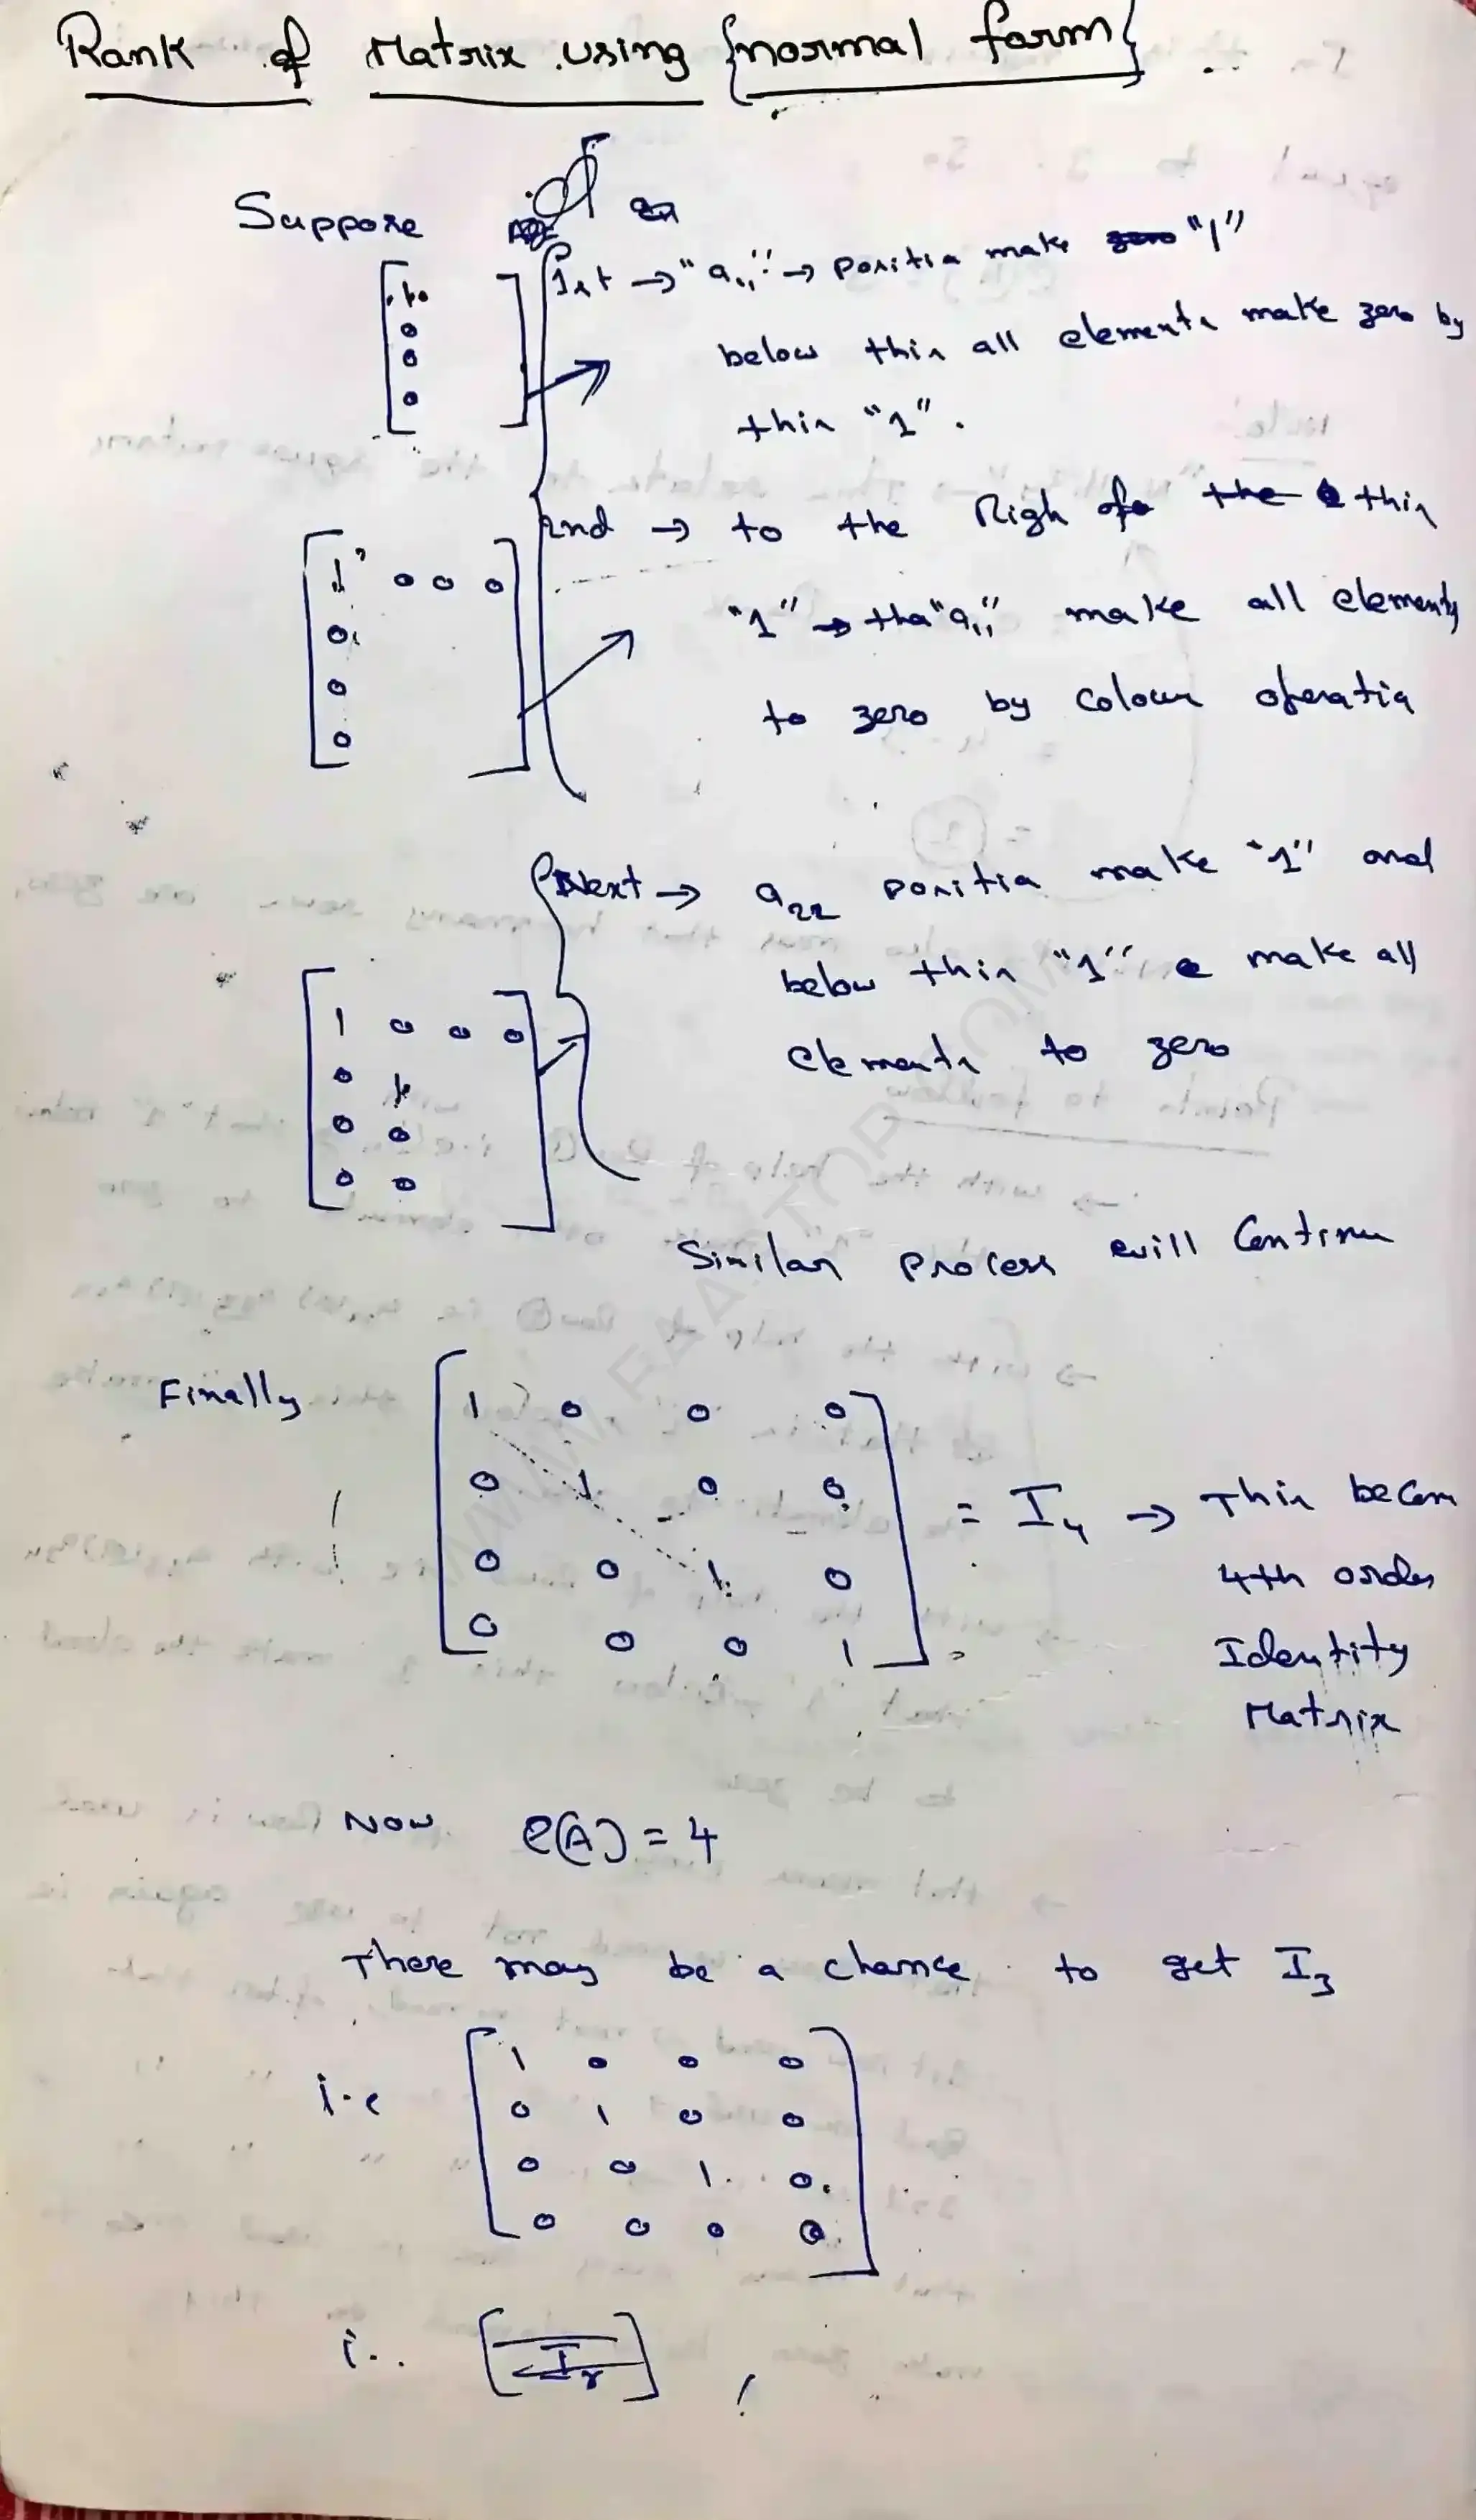 Rank of Matrix using {normal form}
Suppose
1st → "a₁₁" → position make "1"
below this all elements make zero by
this "1".
[1
0
0
0]
2nd → to the Righ of this
[1 0 0 0
0
0
0]
"1" → tha "a₁₁" make all elements
to zero by Coloum operation
Next → a₂₂ position make "1" and
below this "1" make all
elements to zero
[1 0 0 0
0 1
0 0
0 0]
Similar process will Continu
Finally
[1 0 0 0
0 1 0 0
0 0 1 0
0 0 0 1]
= I₄ → This becom
4th order
Identity
Matrix
Now ρ(A) = 4
There may be a chance to get I₃
i.e
[1 0 0 0
0 1 0 0
0 0 1 0
0 0 0 0]
i..